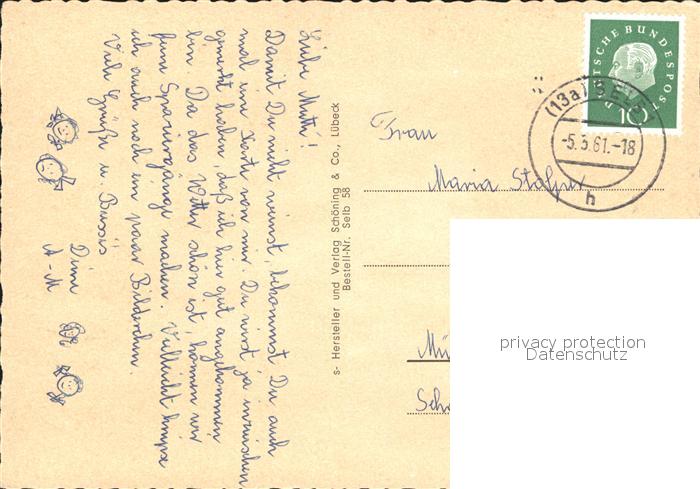 Liebe Mutti!
Damit Du nicht weinst, bekommst Du auch
mal eine Karte von mir. Du wirst ja inzwischen
gemerkt haben, daß ich hier gut angekommen
bin. Da das Wetter schön ist, können wir
feine Spaziergänge machen. Vielleicht knipse
ich auch noch ein paar Bilderchen.
Viele Grüße u. Bussis
Deine
A-M
s- Hersteller und Verlag Schöning & Co., Lübeck
Bestell-Nr. Selb 58
DEUTSCHE BUNDESPOST
10
(13a) SELB
-5.3.61.-18
h
Frau
Maria
Mü
Sch
privacy protection
Datenschutz